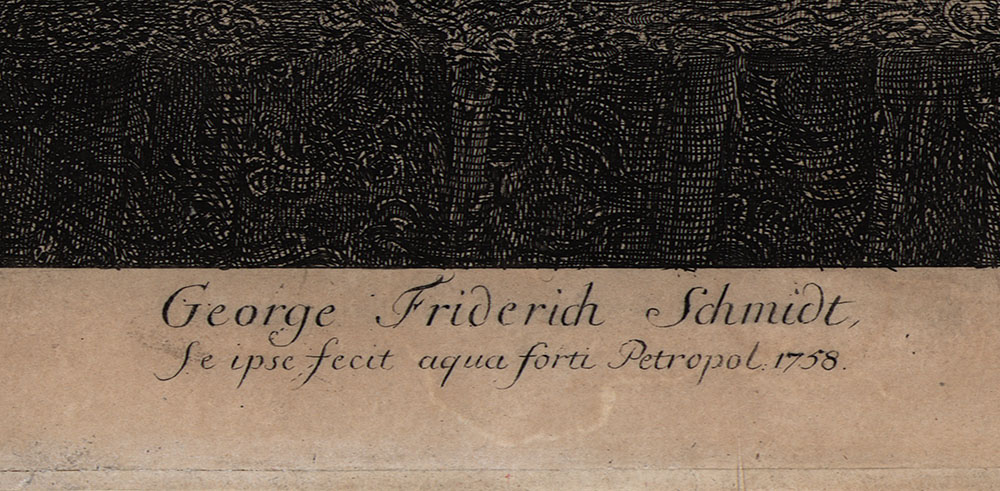 George Friderich Schmidt,
Se ipse fecit aqua forti Petropol: 1758.